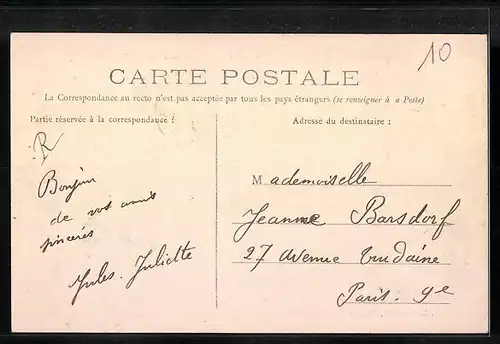 10
CARTE POSTALE
La Correspondance au recto n'est pas acceptée par tous les pays étrangers (se renseigner à a Poste)
Partie réservée à la correspondance :
R
Bonjour
de vos amis
sincères
Jules. Juliette
Adresse du destinataire :
Mademoiselle
Jeanne Barsdorf
27 Avenue Trudaine
Paris. 9e